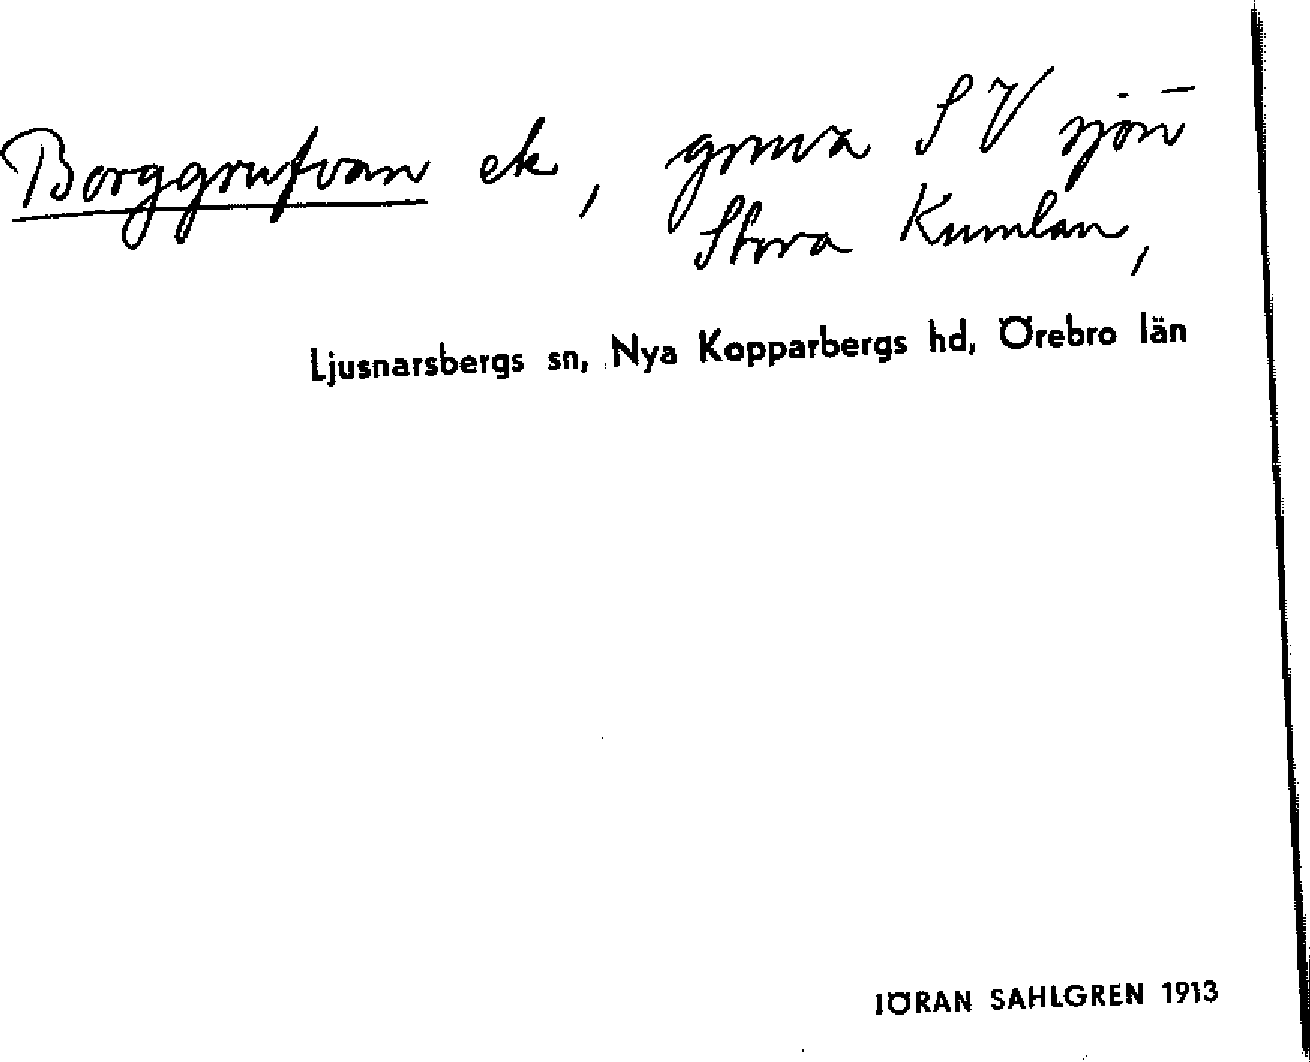 Borggrufvan ek, gruva SV sjön
Stora Kumlan,
Ljusnarsbergs sn, Nya Kopparbergs hd, Örebro län
JÖRAN SAHLGREN 1913